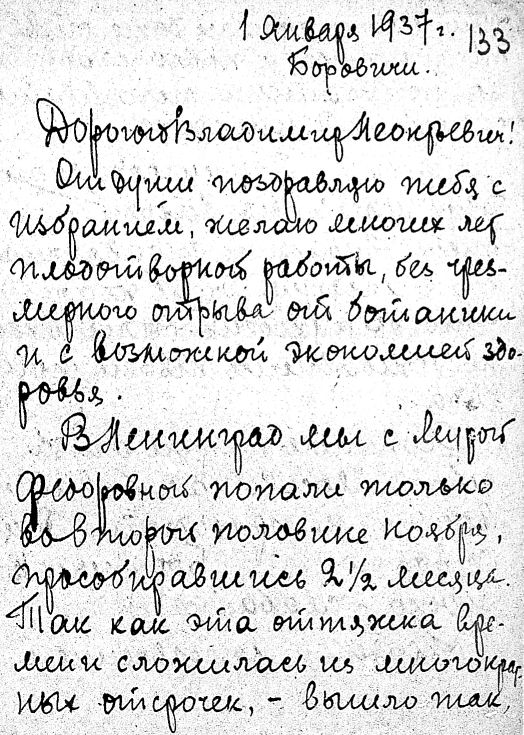 1 Января 1937 г. 133
Боровичи.
Дорогой Владимир Леонтьевич!
От души поздравляю тебя с
избранием, желаю многих лет
плодотворной работы, без чрез-
мерного отрыва от ботаники
и с возможной экономией здо-
ровья.
В Ленинград мы с Мурой
Федоровной попали только
во второй половине ноября,
прособиравшись 2 1/2 месяца.
Так как эта оттяжка вре-
мени сложилась из многократ-
ных отсрочек, - вышло так,